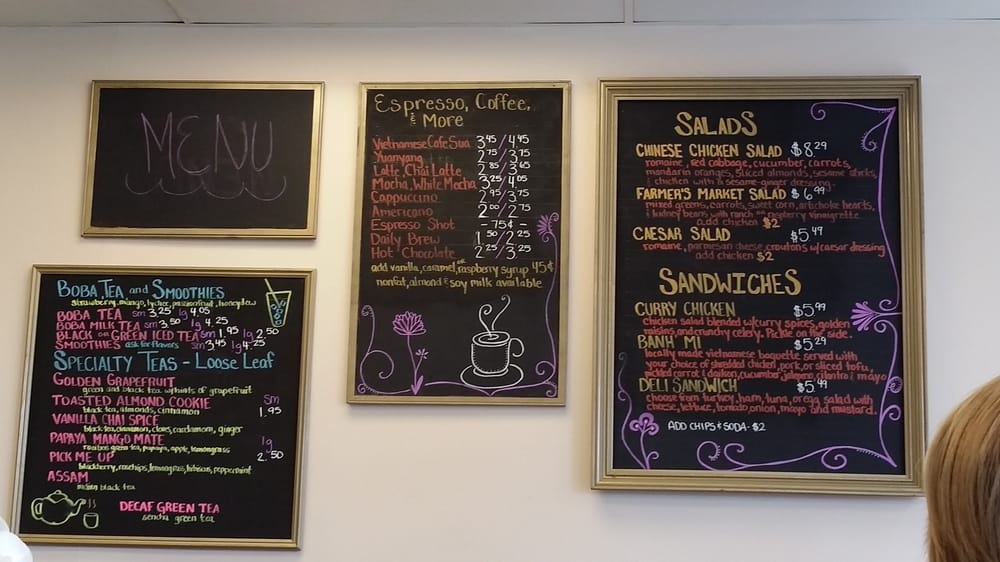 MENU
BOBA TEA and SMOOTHIES
strawberry, mango, lychee, passionfruit, honeydew
BOBA TEA sm 3.25 lg 4.05
BOBA MILK TEA sm 3.50 lg 4.25
BLACK or GREEN ICED TEA sm 1.95 lg 2.50
SMOOTHIES ask for flavors sm 3.45 lg 4.25
SPECIALTY TEAS - LOOSE LEAF
GOLDEN GRAPEFRUIT
green and black tea w/hints of grapefruit
TOASTED ALMOND COOKIE sm
black tea, almonds, cinnamon 1.95
VANILLA CHAI SPICE
black tea, cinnamon, cloves, cardamom, ginger
PAPAYA MANGO MATE lg
rooibos green tea, papaya, apple, lemongrass
PICK ME UP 2.50
blackberry, rosehips, lemongrass, hibiscus, peppermint
ASSAM
indian black tea
DECAF GREEN TEA
sencha green tea
Espresso, Coffee,
& More
Vietnamese Cafe Sua 3.45/4.45
Yuanyang 2.75/3.75
Latte, Chai Latte 2.85/3.65
Mocha, White Mocha 3.25/4.05
Cappuccino 2.95/3.75
Americano 2.00/2.75
Espresso Shot - 75¢ -
Daily Brew 1.50/2.25
Hot Chocolate 2.25/3.25
add vanilla, caramel, or raspberry syrup 45¢
nonfat, almond & soy milk available
SALADS
CHINESE CHICKEN SALAD $8.29
romaine, red cabbage, cucumber, carrots,
mandarin oranges, sliced almonds, sesame sticks,
& chicken with a sesame-ginger dressing.
FARMER'S MARKET SALAD $6.99
mixed greens, carrots, sweet corn, artichoke hearts,
& kidney beans with ranch or raspberry vinaigrette
add chicken $2
CAESAR SALAD $5.49
romaine, parmesan cheese, croutons w/caesar dressing
add chicken $2
SANDWICHES
CURRY CHICKEN $5.99
chicken salad blended w/curry spices, golden
raisins and crunchy celery. Pickle on the side.
BANH MI $5.29
locally made vietnamese baguette served with
your choice of shredded chicken, pork, or sliced tofu,
pickled carrot & daikon, cucumber, jalapeno, cilantro & mayo
DELI SANDWICH $5.99
choose from turkey, ham, tuna, or egg salad with
cheese, lettuce, tomato, onion, mayo and mustard.
ADD CHIPS & SODA - $2